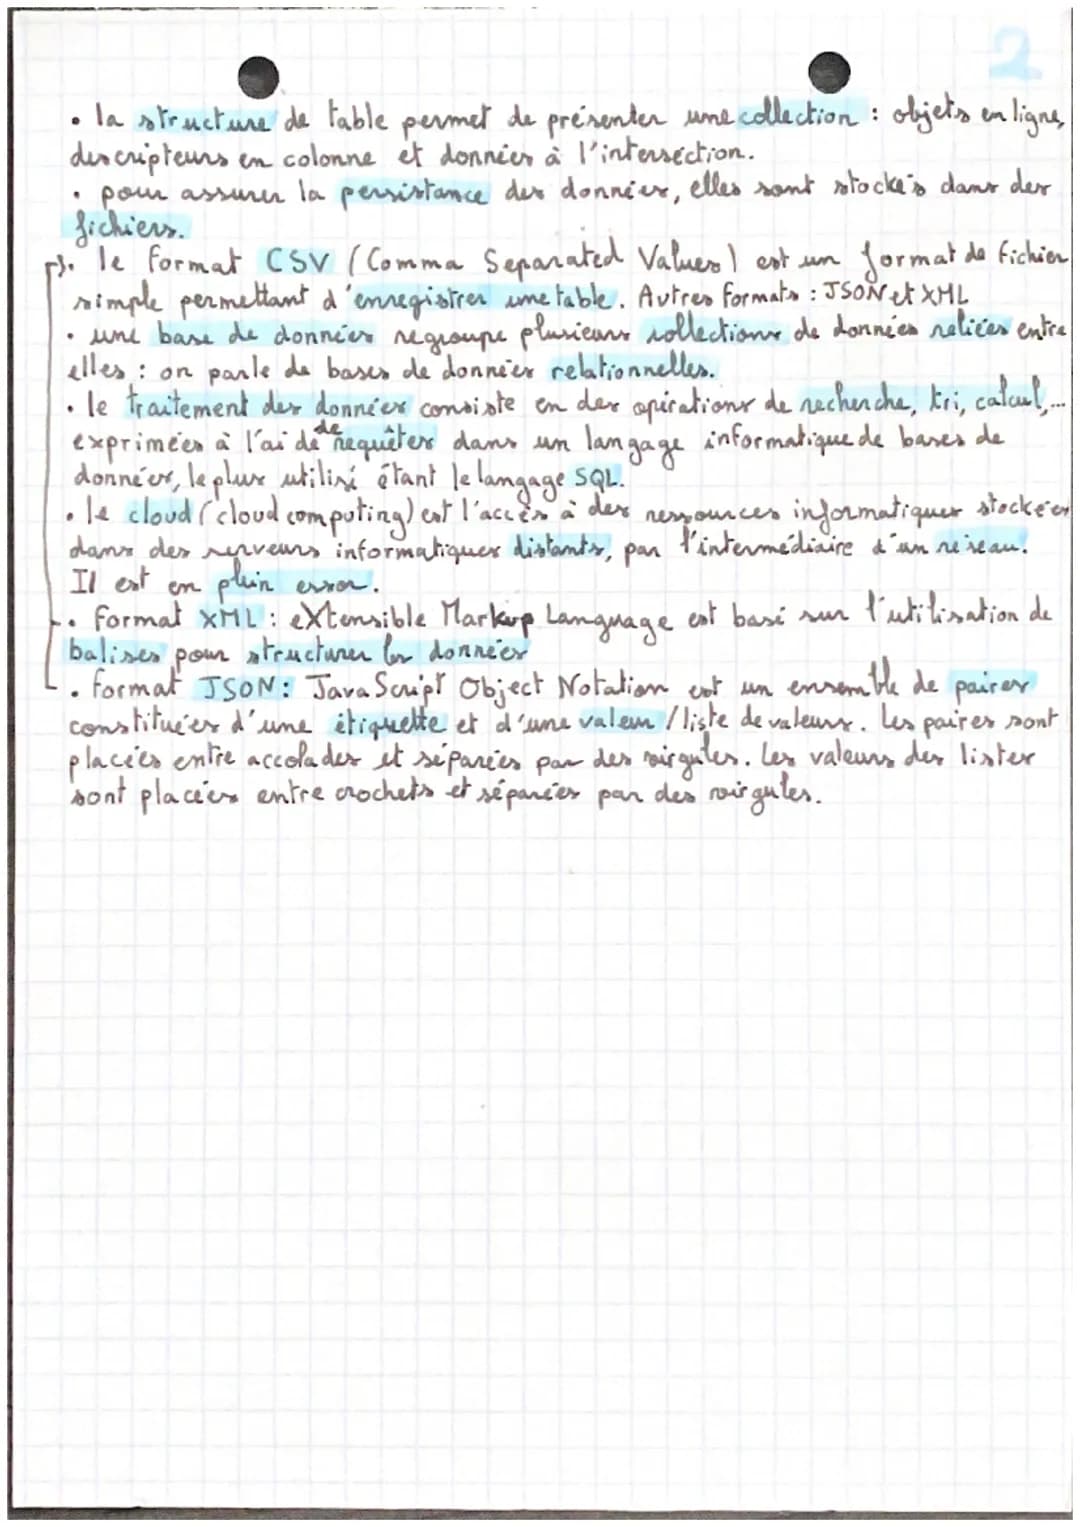 2
• la structure de table permet de présenter une collection : objets en ligne,
descripteurs en colonne et données à l'intersection.
• pour assurer la persistance des données, elles sont stockés dans des
fichiers.
• le format CSV (Comma Separated Values) est un format de fichier
simple permettant d'enregistrer une table. Autres formats : JSON et XML
• une base de données regroupe plusieurs collections de données reliées entre
elles : on parle de bases de données relationnelles.
• le traitement des données consiste en des opérations de recherche, tri, calcul,...
exprimées à l'aide de requêtes dans un langage informatique de bases de
données, le plus utilisé étant le langage SQL.
• le cloud (cloud computing) est l'accès à des ressources informatiques stockées
dans des serveurs informatiques distants, par l'intermédiaire d'un réseau.
Il est en plein essor.
• format XML : eXtensible Markup Language est basé sur l'utilisation de
balises pour structurer les données
• format JSON : JavaScript Object Notation est un ensemble de paires
constituées d'une étiquette et d'une valeur / liste de valeurs. Les paires sont
placées entre accolades et séparées par des virgules. Les valeurs des listes
sont placées entre crochets et séparées par des virgules.